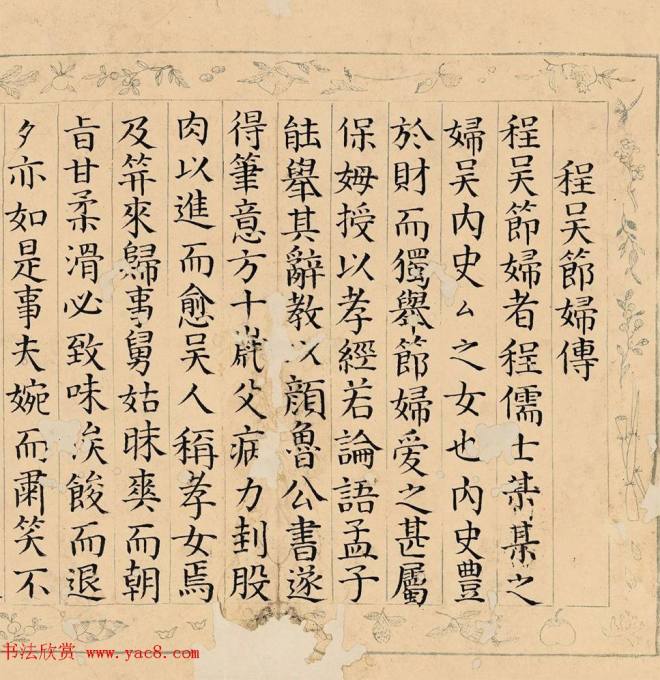 程吴節婦傳
程吴節婦者程儒士某某之
婦吴内史厶之女也内史豐
於財而獨舉節婦愛之甚屬
保姆授以孝經若論語孟子
能舉其辭教以顔魯公書遂
得筆意方十歲父病力刲股
肉以進而愈吴人稱孝女焉
及笄來歸事舅姑昧爽而朝
旨甘柔滑必致味俟餕而退
夕亦如是事夫婉而肅笑不
书法欣赏 www.yac8.com